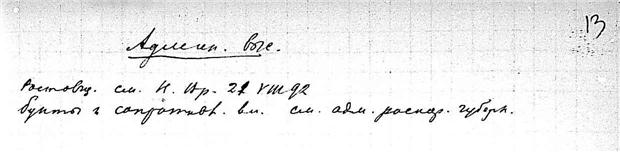 13
Админ. выс.
Ростовц. см. Н. Вр. 21 VIII 92
бунты и сопротивл. вл. см. адм. распор. губерн.